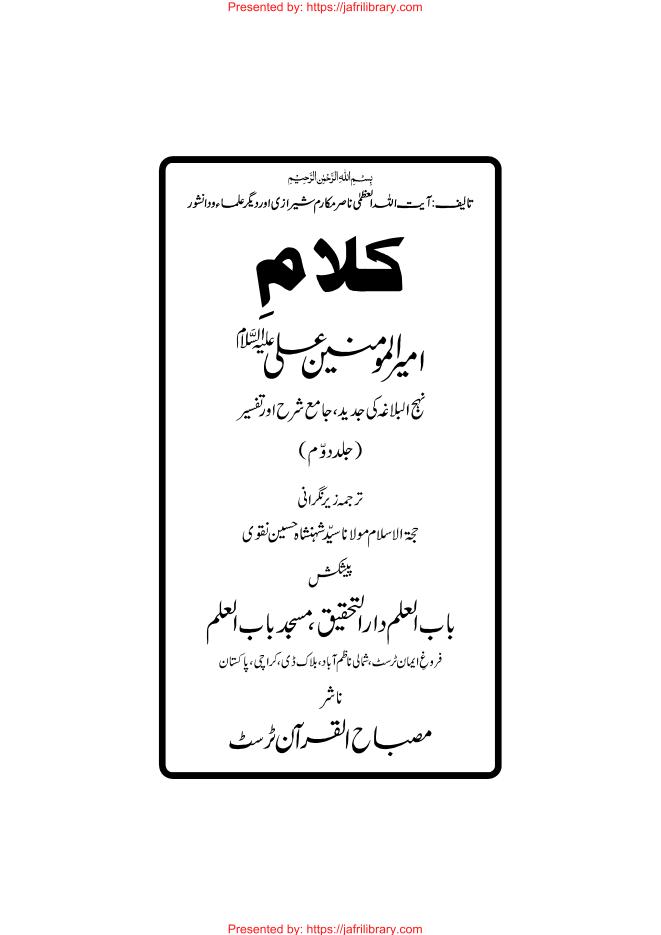 Presented by: https://jafrilibrary.com
بِسْمِ اللهِ الرَّحْمٰنِ الرَّحِيْمِ
تالیف: آیت اللہ العظمٰی ناصر مکارم شیرازی اور دیگر علماء و دانشور
کلامِ
امیر المومنین علی علیہ السّلام
نہج البلاغہ کی جدید، جامع شرح اور تفسیر
(جلد دوّم)
ترجمہ زیر نگرانی
حجۃ الاسلام مولانا سیّد شہنشاہ حسین نقوی
پیشکش
باب العلم دار التحقیق، مسجد باب العلم
فروغِ ایمان ٹرسٹ، شمالی ناظم آباد، بلاک ڈی، کراچی، پاکستان
ناشر
مصباح القرآن ٹرسٹ
Presented by: https://jafrilibrary.com